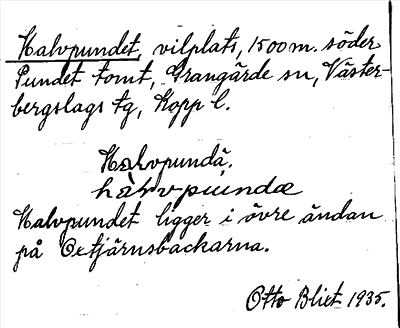 Halvpundet, vilplats, 1500 m. söder
Pundet tomt, Grangärde sn, Väster-
bergslags tg, Kopp l.
Halvpundä.
hàlvpundæ
Halvpundet ligger i övre ändan
på Oxtjärnsbackarna.
Otto Blixt 1935.